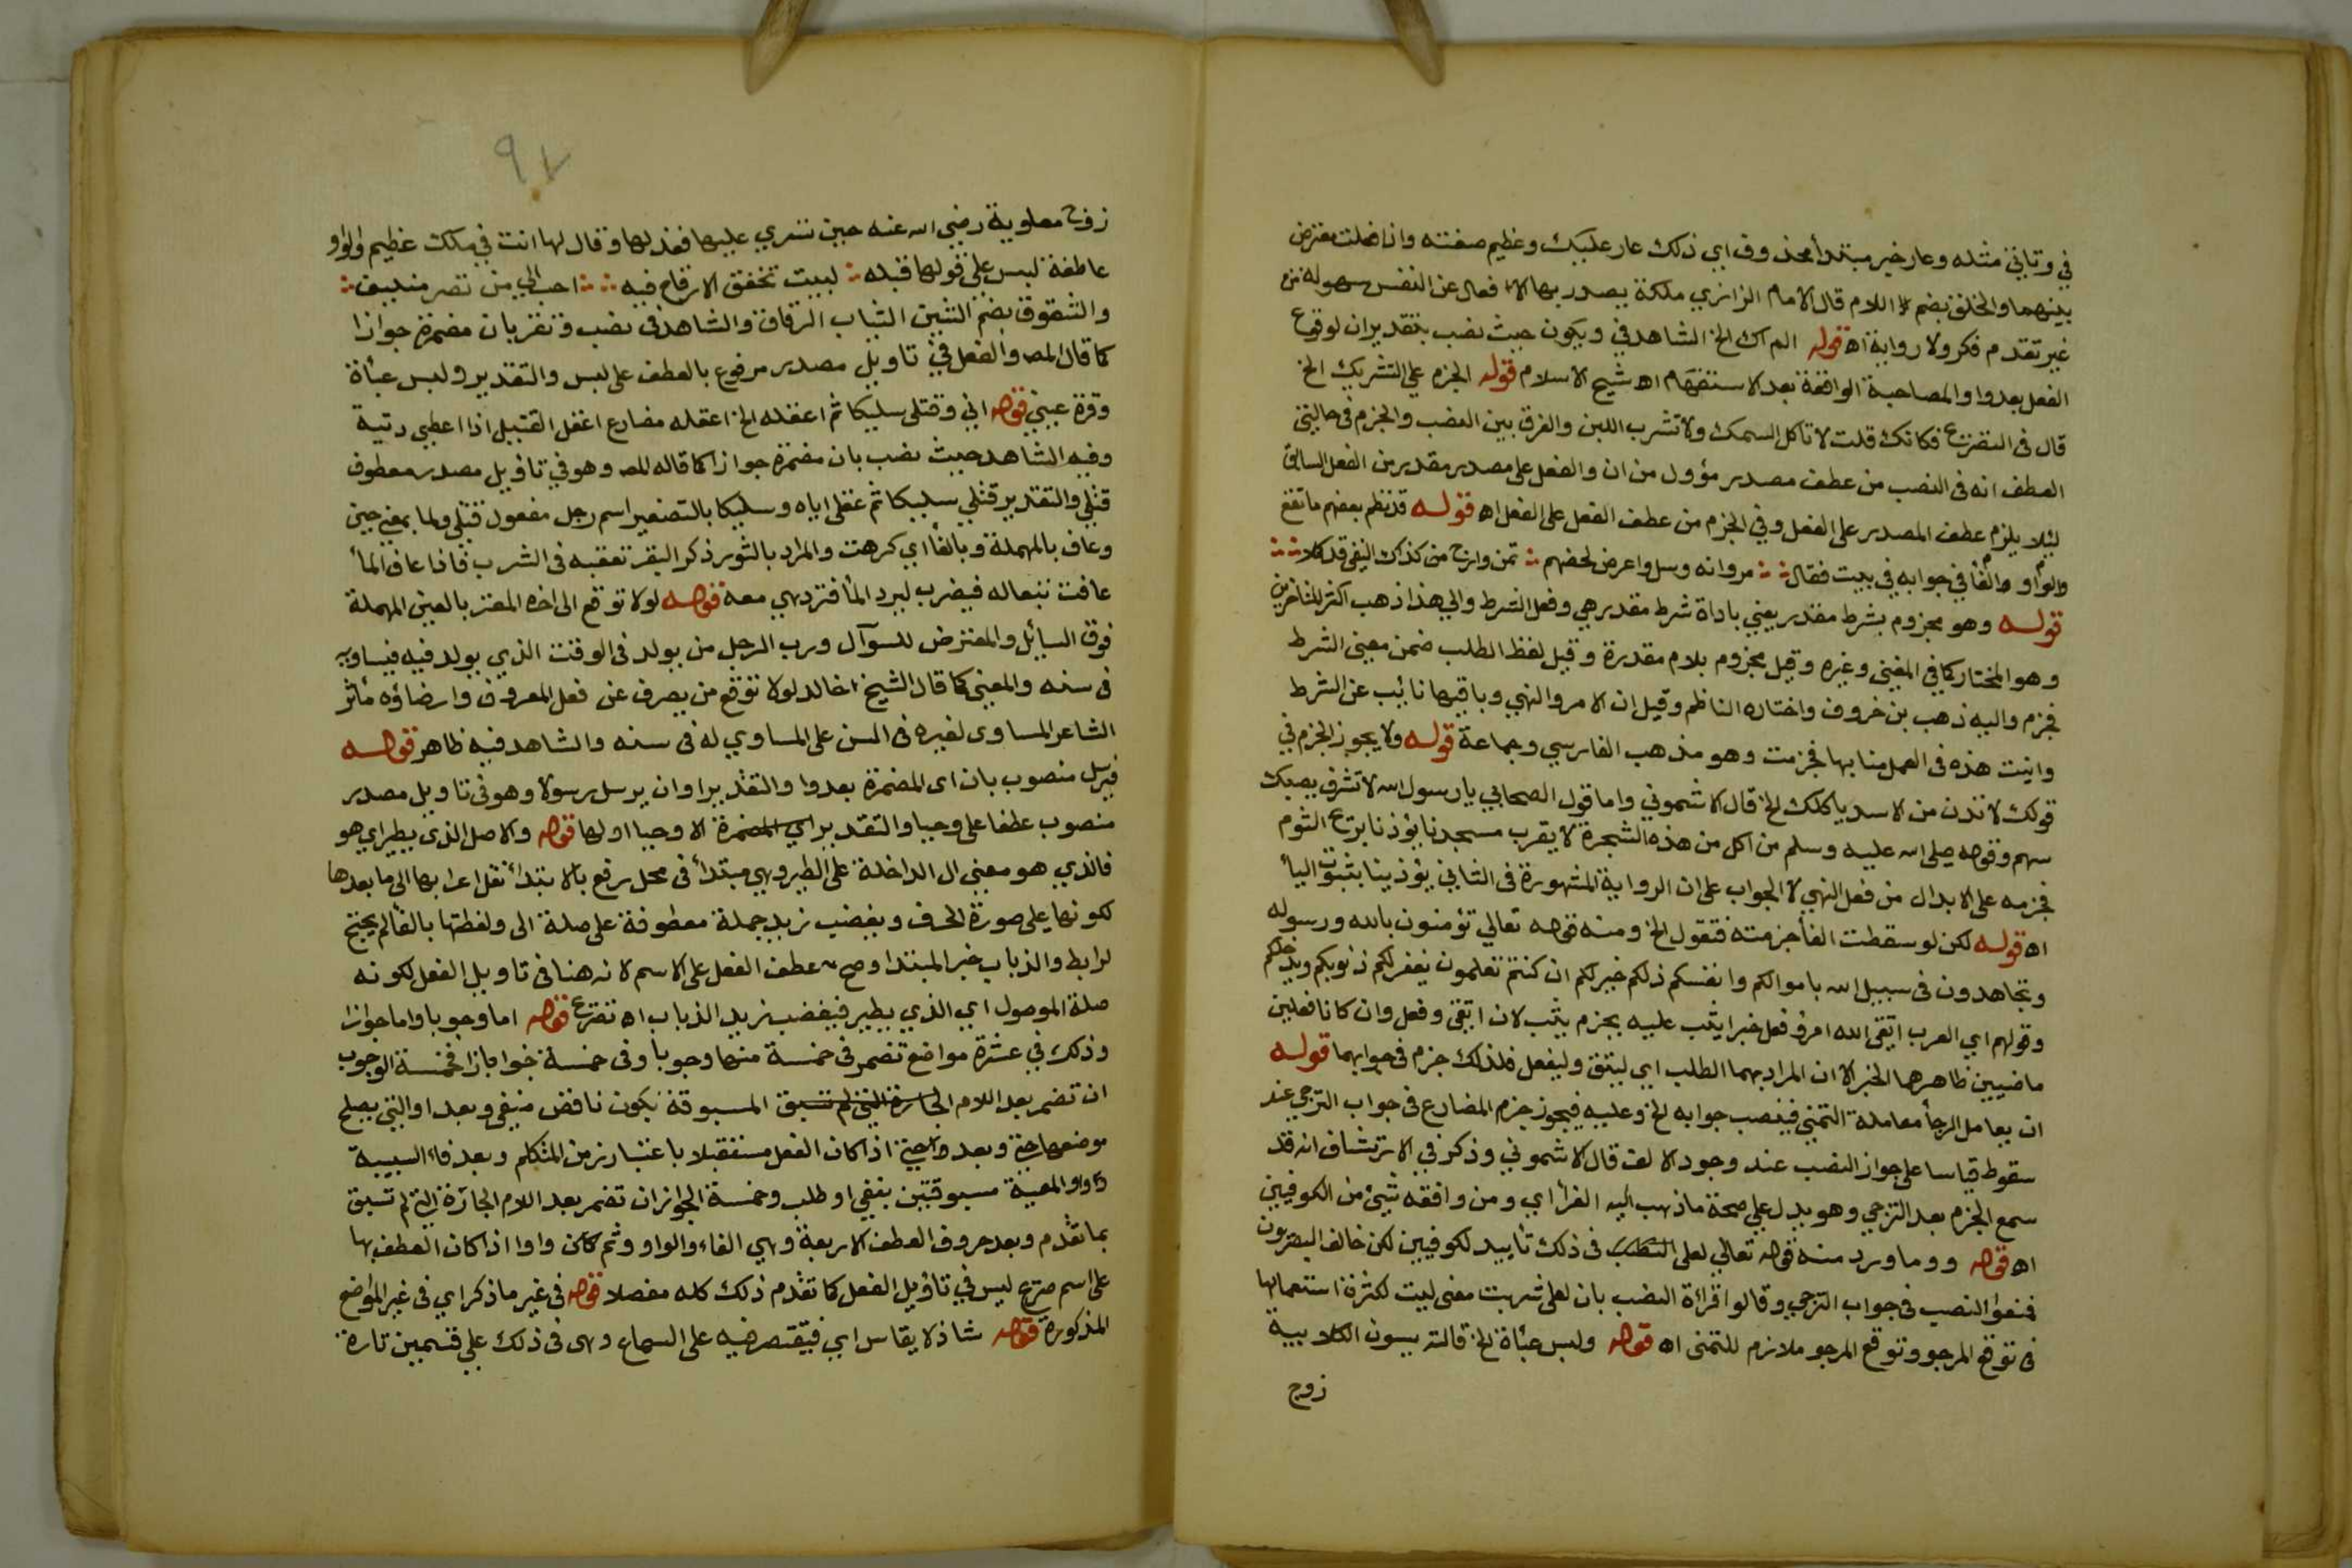 في وتاتي مثله وعار خبر مبتدأ محذوف اي ذلك عار عليك وعظيم صفته واذا فعلت معترض
بينهما والخلق بضم اللام قال الامام الرازي ملكة يصدر بها الافعال عن النفس بسهولة من
غير تقدم فكر ولا روية اه قوله الم اك الخ الشاهد في ويكون حيث نصب بتقدير ان لوقوع
الفعل بعد واو المصاحبة الواقعة بعد الاستفهام اه شيخ الاسلام قوله الجزم على التشريك الخ
قال في التصريح فكانك قلت لا تاكل السمك ولا تشرب اللبن والفرق بين النصب والجزم في حالتي
العطف انه في النصب من عطف مصدر مؤول من ان والفعل على مصدر مقدر من الفعل السابق
ليلا يلزم عطف المصدر على الفعل وفي الجزم من عطف الفعل على الفعل اه قوله قد نظم بعضهم ما تقع
الواو والفا في جوابه في بيت فقال مر وانه وسل واعرض لحضهم تمن وارج من كذاك النفي قد كملا
قوله وهو مجزوم بشرط مقدر يعني باداة شرط مقدر هي وفعل الشرط والي هذا ذهب اكثر المتاخرين
وهو المختار كما في المغني وغيره وقيل مجزوم بلام مقدرة وقيل لفظ الطلب ضمن معنى الشرط
فجزم واليه ذهب بن خروف واختاره الناظم وقيل ان الامر والنهي وباقيها نائب عن الشرط
وانيبت هذه في العمل منابها فجزمت وهو مذهب الفارسي وجماعة قوله ولا يجوز الجزم في
قولك لا تدن من الاسد ياكلك الخ قال الاشموني واما قول الصحابي يا رسول الله لا تشرف يصبك
سهم وقوله صلى الله عليه وسلم من اكل من هذه الشجرة لا يقرب مسجدنا يؤذنا بريح الثوم
فجزمه على الابدال من فعل النهي لا الجواب على ان الرواية المشهورة في الثاني يؤذينا بثبوت اليأ
اه قوله لكن لو سقطت الفأ جزمته فتقول الخ ومنه قوله تعالي تؤمنون بالله ورسوله
وتجاهدون في سبيل الله باموالكم وانفسكم ذلكم خير لكم ان كنتم تعلمون يغفر لكم ذنوبكم ويدخلكم
وقولهم اي العرب اتقى الله امرؤ فعل خيرا يثب عليه بجزم يثب لان اتقى وفعل وان كانا فعلين
ماضيين ظاهرهما الخبر الا ان المراد بهما الطلب اي ليتق وليفعل فلذلك جزم في جوابهما قوله
ان يعامل الرجأ معاملة التمني فينصب جوابه الخ وعليه فيجوز جزم المضارع في جواب الترجي عند
سقوط قياسا على جواز النصب عند وجود الالف قال الاشموني وذكر في الارتشاف انه قد
سمع الجزم بعد الترجي وهو يدل علي صحة ما ذهب اليه الفرأ اي ومن وافقه شيئ من الكوفيين
اه قوله ووما ورد منه قوله تعالي لعلى في ذلك تأييد لكوفيين لكن خالف البصريون
فمنعوا النصب في جواب الترجي وقالوا قرأة النصب بان لعل شربت معنى ليت لكثرة استعمالها
في توقع المرجو وتوقع المرجو ملازم للتمنى اه قوله ولبس عبأة الخ قالته ميسون الكلابية
زوج
زوج معاوية رضي الله عنه حين تسري عليها فعذلها وقال لها انت في ملك عظيم والواو
عاطفة لبس علي قولها قبله لبيت تخفق الارواح فيه احب الي من قصر منيف
والشفوف بضم الشين الثياب الرقاق والشاهد في نصب وتقر بان مضمرة جوازا
كما قال المص والفعل في تاويل مصدر مرفوع بالعطف على لبس والتقدير ولبس عبأة
وقرة عيني قوله اني وقتلى سليكا ثم اعقله الخ اعقله مضارع اعقل القتيل اذا اعطي ديته
وفيه الشاهد حيث نصب بان مضمرة جوازا كما قاله المص وهو في تاويل مصدر معطوف
قتلي والتقدير قتلي سليكا ثم عقلى اياه وسليكا بالتصغير اسم رجل مفعول قتلي ولما بمعني حين
وعاف بالمهملة وبالفأ اي كرهت والمراد بالثور ذكر البقر تعقبه في الشرب فاذا عاف الما
عافت تبعا له فيضرب ليرد المأ فترد هي معه قوله لولا توقع الى اخره المعتر بالعين المهملة
فوق السايل والمعترض للسؤال ورب الرجل من يولد في الوقت الذي يولد فيه فيساويه
في سنه والمعني كما قال الشيخ خالد لولا توقع من يصرف عن فعل المعروف وارضاؤه مأثر
الشاعر المساوى لغيره في السن على المساوي له في سنه والشاهد فيه ظاهر قوله
فيرسل منصوب بان اى المضمرة بعد وا والتقدير او ان يرسل رسولا وهو في تاويل مصدر
منصوب عطفا على وحيا والتقدير اي المضمرة الا وحيا او لها قوله والاصل الذى يطير اي هو
فالذي هو معنى ال الداخلة على الطير وهي مبتدأ في محل رفع بالابتدأ نقل اعرابها الى ما بعدها
لكونها على صورة الحرف ويغضب زيد جملة معطوفة على صلة الى ولفظتها بالفأ لم يحتج
لرابط والذباب خبر المبتدا وصح عطف الفعل على الاسم لانه هنا في تاويل الفعل لكونه
صلة الموصول اي الذي يطير فيغضب زيد الذباب اه تصريح قوله اما وجوبا واما جوازا
وذلك في عشرة مواضع تضمر في خمسة منها وجوبا وفي خمسة جوازا فخمسة الوجوب
ان تضمر بعد اللام الجارة التي لم تسبق المسبوقة بكون ناقص منفي وبعد او التي يصلح
موضعها حتى وبعد حتى اذا كان الفعل مستقبلا باعتبار زمن المتكلم وبعد فاء السببية
وواو المعية مسبوقتين بنفي او طلب وخمسة الجواز ان تضمر بعد اللام الجارة التي لم تسبق
بما تقدم وبعد حروف العطف الاربعة وهي الفاء والواو وثم وا اذا كان العطف بها
على اسم صريح ليس في تاويل الفعل كما تقدم ذلك كله مفصلا قوله في غير ما ذكر اي في غير المواضع
المذكورة قوله شاذ لا يقاس اي فيقتصر فيه على السماع وهى في ذلك علي قسمين تارة